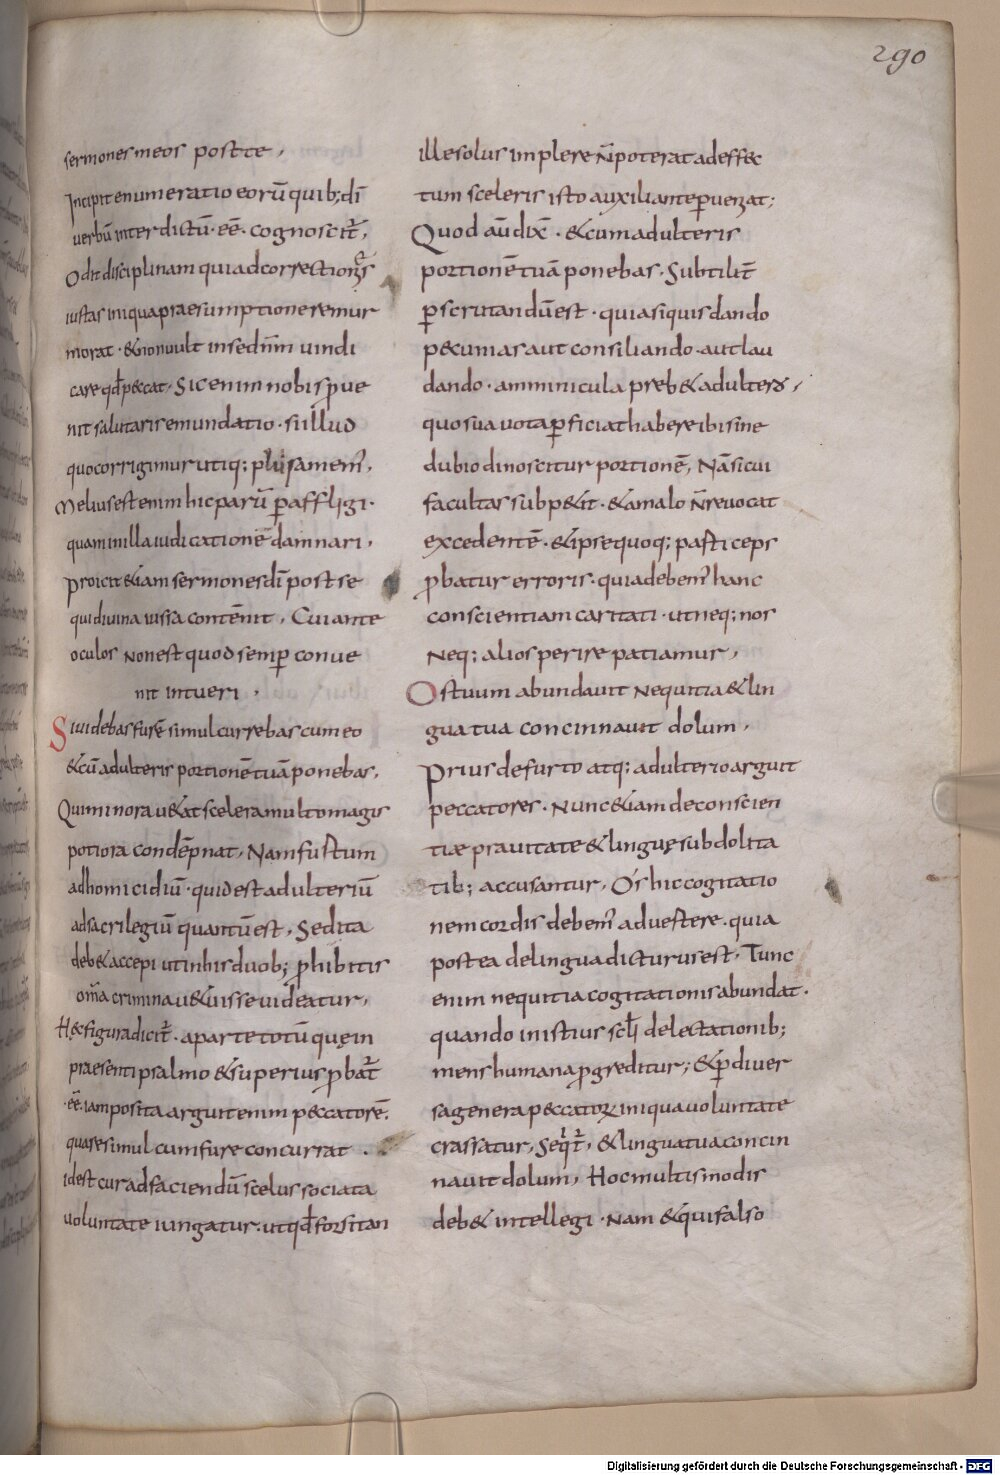 290
sermones meos post te,
Incipit enumeratio eorū quib; dī
uerbū interdictū·eē·cognoscit̄,
Odit disciplinam qui ad correctionē
iustas iniqua praesumptione remur
morat·& non uult in se dn̄m uindi
care qđ peccat·Sic enim nobis ꝓue
nit salutaris emundatio·si illud
quo corrigimur utiq; plus amem̄,
Melius est enim hic parū ꝑ affligi·
quam in illa iudicatione damnari,
Proicit &iam sermones dī post se
qui diuina iussa contēnit, Cui ante
oculos non est quod semꝑ conue
nit intueri,
Si uidebas furē simul currebas cum eo
& cū adulteris portionē tuā ponebas,
Qui minora u&at scelera multo magis
potiora condēpnat, Nam furtum
ad homicidiū·quid est adulteriū
ad sacrilegiū quantū est, Sed ita
deb& accepi ut in his duob; ꝓhibitis
om̄a crimina u&uisse uideatur,
Hęc figura dicit̄·a parte totū quę in
praesenti psalmo & superius ꝓbat̄
·eē·iam posita arguit enim peccatorē,
quare simul cum fure concurrat·
id est cur ad faciendū scelus sociata
uoluntate iungatur·ut qđ forsitan
ille solus implere n̄ poterat ad effec
tum sceleris isto auxiliante ꝑueniat;
Quod aū dix̄·& cum adulteris
portionē tuā ponebas·Subtilit̄
ꝑscrutandū est·quia siquis dando
pecunias aut consiliando·aut lau
dando·amminicula preb& adulteris,
quo sua uota ꝑficiat habere ibi sine
dubio dinoscitur portionē, Nā si cui
facultas subp&it·& a malo n̄ reuocat
excedentē·& ipse quoq; particeps
ꝓbatur erroris·quia debem̄ hanc
conscientiam caritati·ut neq; nos
Neq; alios perire patiamur,
Os tuum abundauit nequitia & lin
gua tua concinnauit dolum,
Prius de furto atq; adulterio arguit
peccatores·Nunc &iam de conscien
tiæ prauitate & linguę subdolita
tib; accusantur, Os hic cogitatio
nem cordis debem̄ aduertere·quia
postea de lingua dicturus est, Tunc
enim nequitia cogitationis abundat·
quando in istius scłi delectationib;
mens humana ꝓgreditur; & ꝑ diuer
sa genera peccatoꝝ iniqua uoluntate
crassatur, Seqt̄, & lingua tua concin
nauit dolum, Hoc multis modis
deb& intellegi·Nam & qui falso
Digitalisierung gefördert durch die Deutsche Forschungsgemeinschaft - DFG